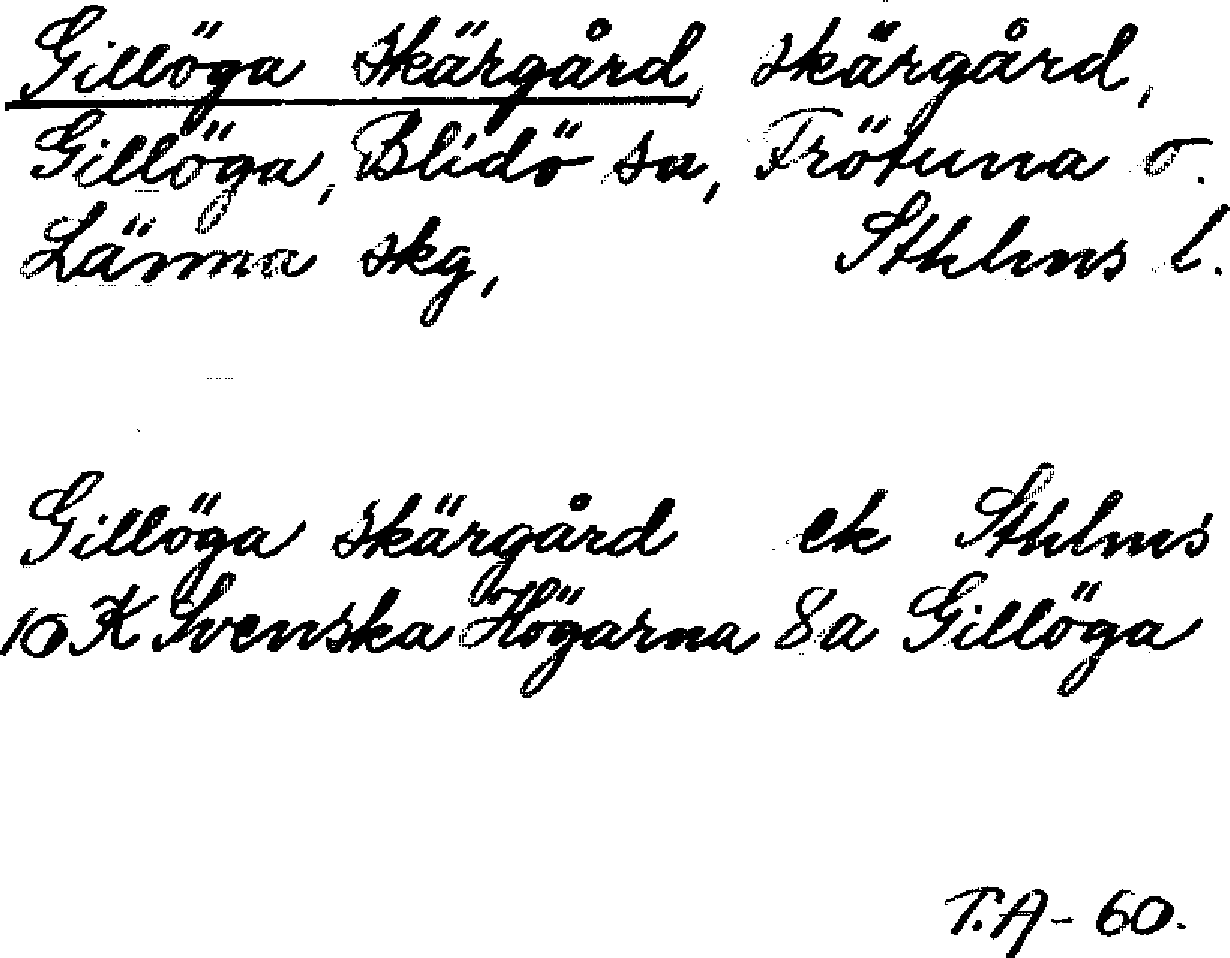 Gillöga skärgård, skärgård,
Gillöga, Blidö sn, Frötuna o.
Länna skg, Sthlms l.
Gillöga skärgård ek Sthlms
10 K Svenska Högarna 8a Gillöga
T.A - 60.